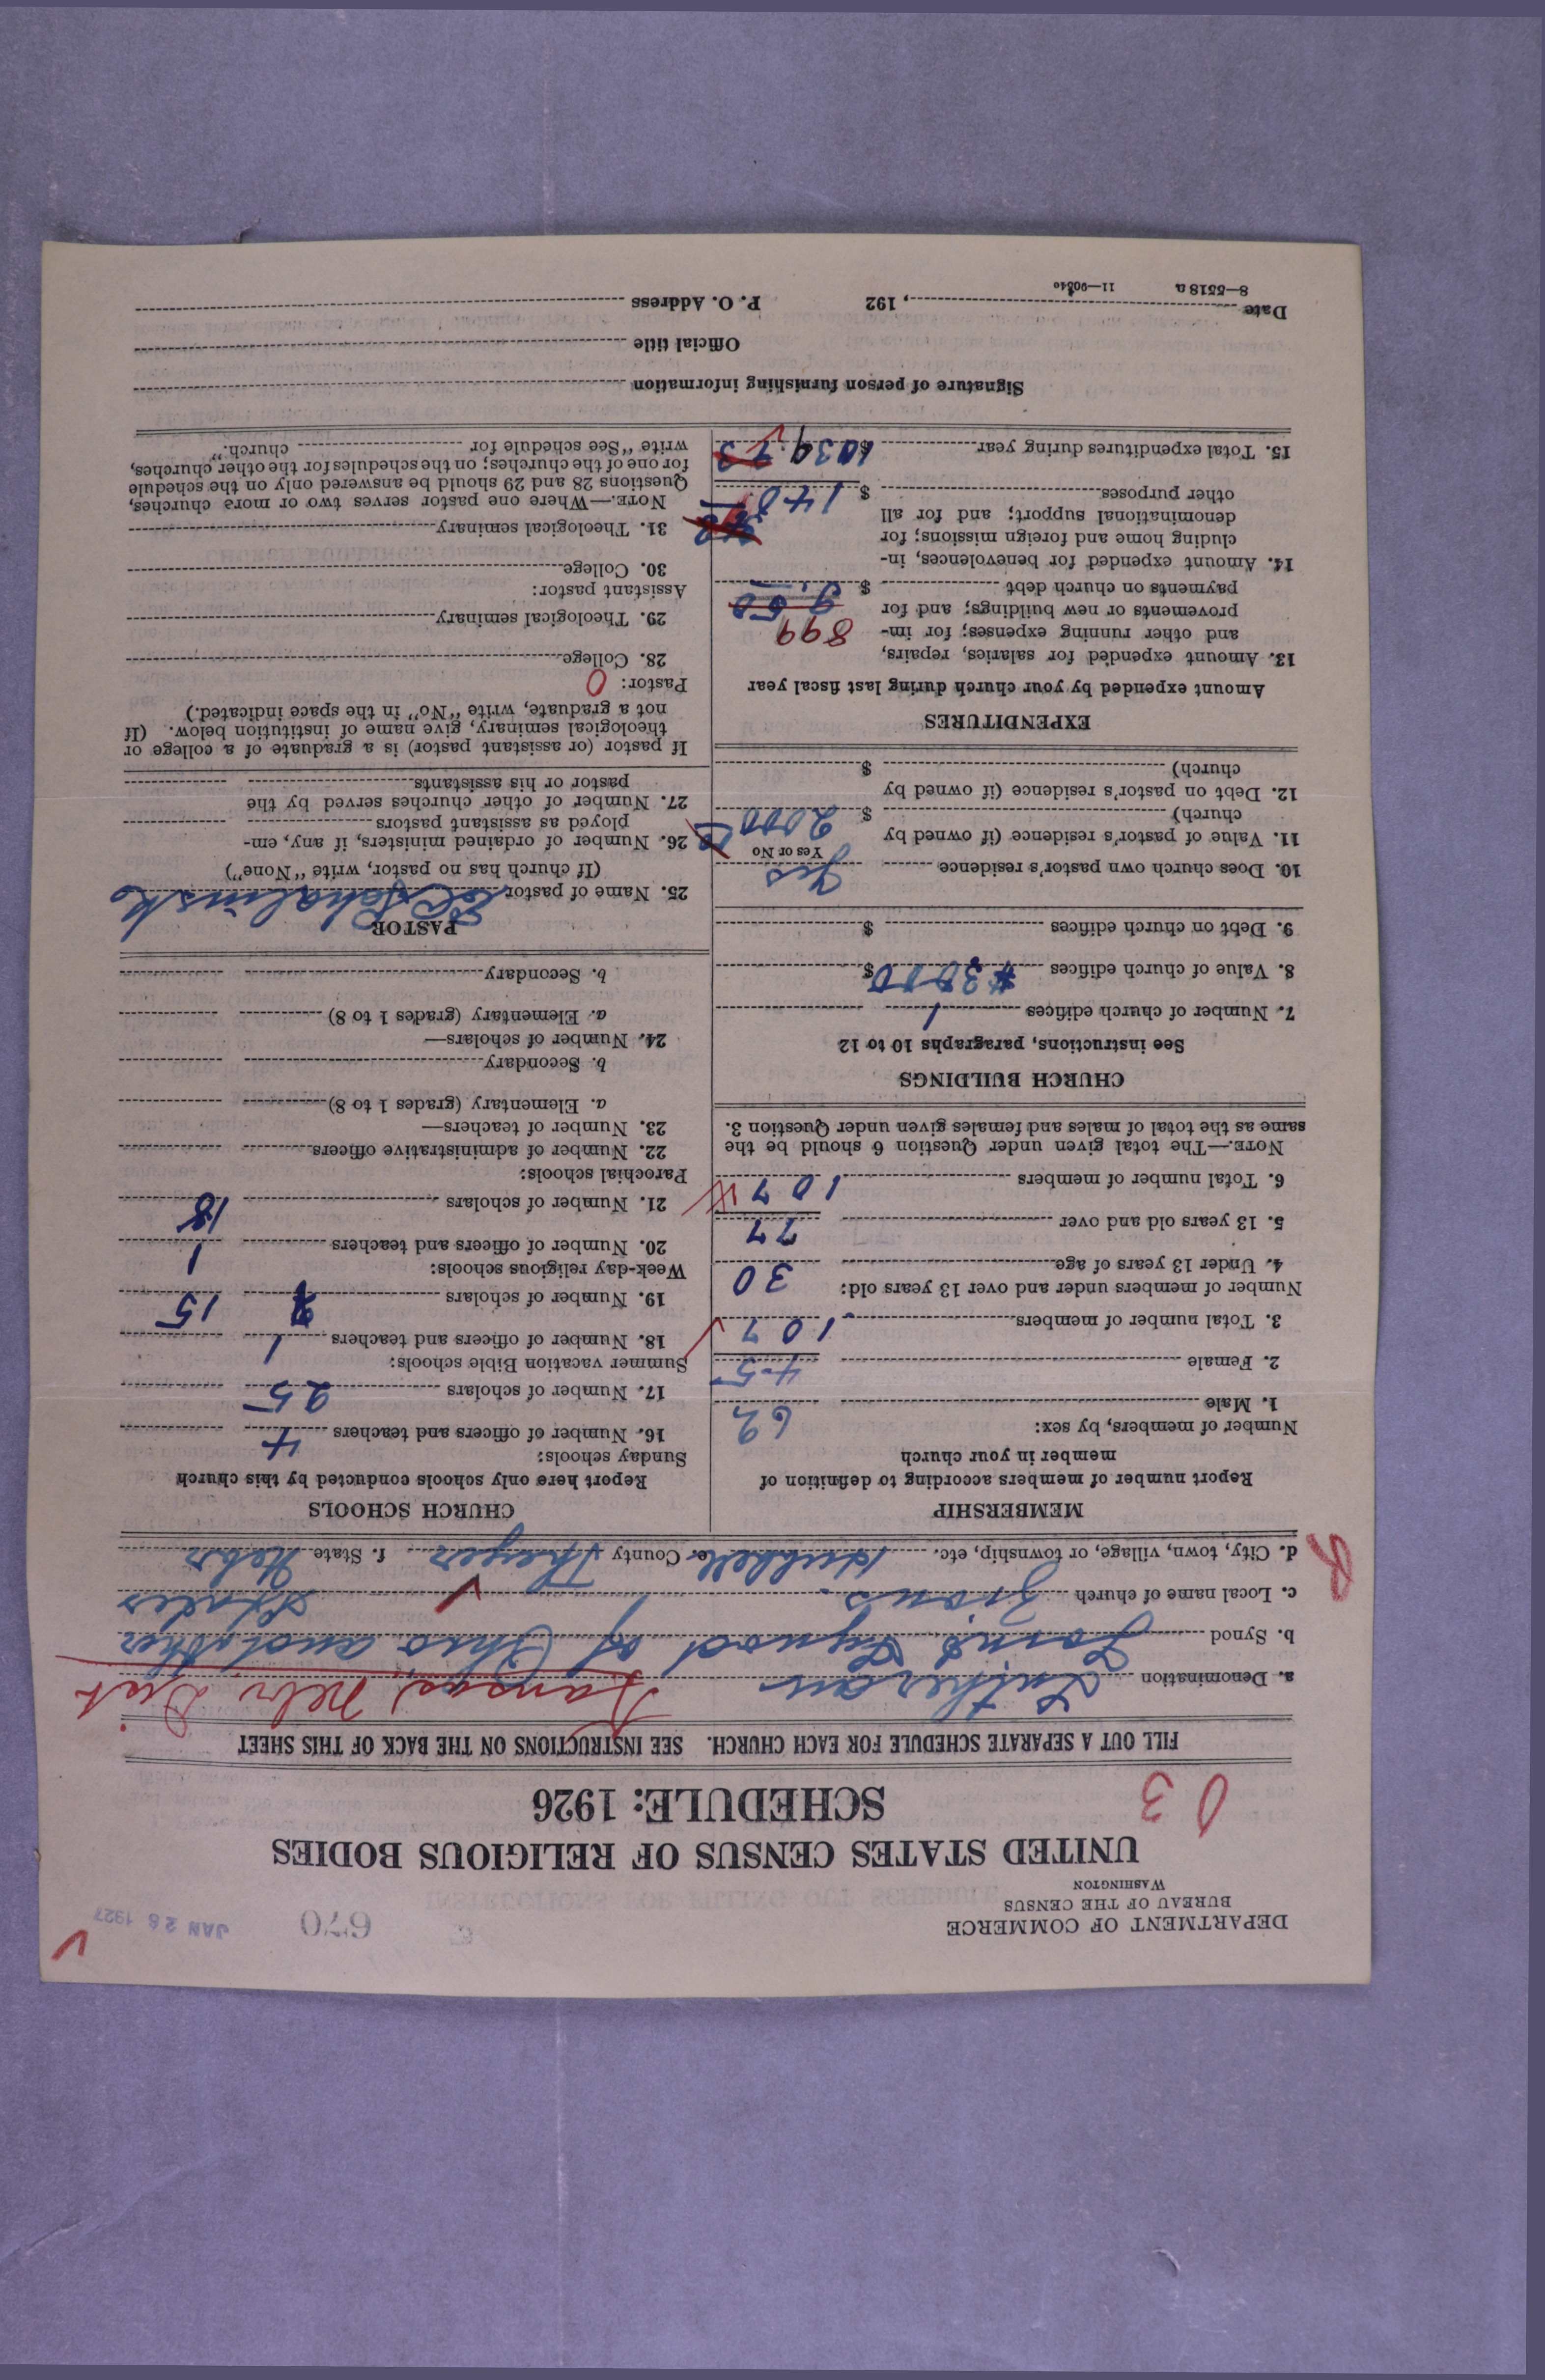 DEPARTMENT OF COMMERCE
BUREAU OF THE CENSUS
WASHINGTON
670
JAN 26 1927
UNITED STATES CENSUS OF RELIGIOUS BODIES
SCHEDULE: 1926
03
FILL OUT A SEPARATE SCHEDULE FOR EACH CHURCH. SEE INSTRUCTIONS ON THE BACK OF THIS SHEET
a. Denomination Lutheran Kansas, Nebr Dist
b. Synod Joint Synod of Ohio and other
c. Local name of church Zion's States
d. City, town, village, or township, etc. Hubbell e. County Thayer f. State Nebr
MEMBERSHIP
Report number of members according to definition of
member in your church
Number of members, by sex:
1. Male 62
2. Female 45
3. Total number of members 107
Number of members under and over 13 years old:
4. Under 13 years of age 30
5. 13 years old and over 77
6. Total number of members 107
NOTE.—The total given under Question 6 should be the
same as the total of males and females given under Question 3.
CHURCH BUILDINGS
See instructions, paragraphs 10 to 12
7. Number of church edifices 1
8. Value of church edifices $ 3000
9. Debt on church edifices $
10. Does church own pastor's residence Yes
Yes or No
11. Value of pastor's residence (if owned by
church) $ 2000
12. Debt on pastor's residence (if owned by
church) $
EXPENDITURES
Amount expended by your church during last fiscal year
13. Amount expended for salaries, repairs,
and other running expenses; for im- 899
provements or new buildings; and for
payments on church debt $
14. Amount expended for benevolences, in-
cluding home and foreign missions; for
denominational support; and for all
other purposes $ 140
15. Total expenditures during year $ 1039
CHURCH SCHOOLS
Report here only schools conducted by this church
Sunday schools:
16. Number of officers and teachers 4
17. Number of scholars 25
Summer vacation Bible schools:
18. Number of officers and teachers 1
19. Number of scholars 15
Week-day religious schools:
20. Number of officers and teachers 1
21. Number of scholars 18
Parochial schools:
22. Number of administrative officers
23. Number of teachers—
a. Elementary (grades 1 to 8)
b. Secondary
24. Number of scholars—
a. Elementary (grades 1 to 8)
b. Secondary
PASTOR
25. Name of pastor
(If church has no pastor, write "None")
26. Number of ordained ministers, if any, em-
ployed as assistant pastors
27. Number of other churches served by the
pastor or his assistants
If pastor (or assistant pastor) is a graduate of a college or
theological seminary, give name of institution below. (If
not a graduate, write "No" in the space indicated.)
Pastor: 0
28. College
29. Theological seminary
Assistant pastor:
30. College
31. Theological seminary
NOTE.—Where one pastor serves two or more churches,
Questions 28 and 29 should be answered only on the schedule
for one of the churches; on the schedules for the other churches,
write "See schedule for church."
Signature of person furnishing information
Official title
Date , 192 P. O. Address
8—5518 a 11—9034o